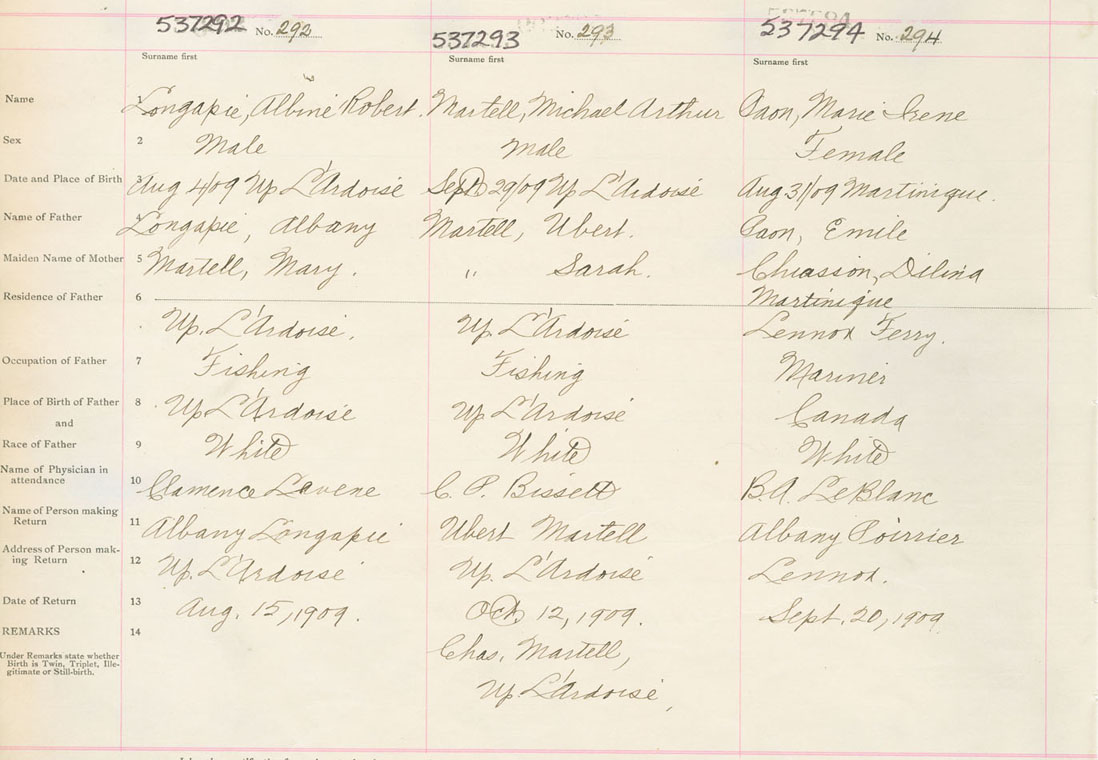 537292 No. 292 537293 No. 293 537294 No. 294
Surname first Surname first Surname first
Name 1 Longapie, Albine Robert. Martell, Michael Arthur Paon, Marie Irene
Sex 2 Male Male Female
Date and Place of Birth 3 Aug 4/09 Up L'Ardoise Sept 29/09 Up L'Ardoise Aug 31/09 Martinique.
Name of Father 4 Longapie, Albany Martell, Ubert. Paon, Emile
Maiden Name of Mother 5 Martell, Mary. " Sarah. Chiasson, Dilina
Residence of Father 6 Martinique
Up. L'Ardoise. Up L'Ardoise Lennox Ferry.
Occupation of Father 7 Fishing Fishing Mariner
Place of Birth of Father 8 Up L'Ardoise Up L'Ardoise Canada
and
Race of Father 9 White White White
Name of Physician in
attendance 10 Clamence Lavene C. P. Bissett B.A. LeBlanc
Name of Person making
Return 11 Albany Longapie Ubert Martell Albany Poirrier
Address of Person mak-
ing Return 12 Up. L'Ardoise Up. L'Ardoise Lennox.
Date of Return 13 Aug. 15, 1909. Oct. 12, 1909. Sept. 20, 1909.
REMARKS 14
Chas. Martell,
Under Remarks state whether
Birth is Twin, Triplet, Ille-
gitimate or Still-birth.
Up. L'Ardoise,